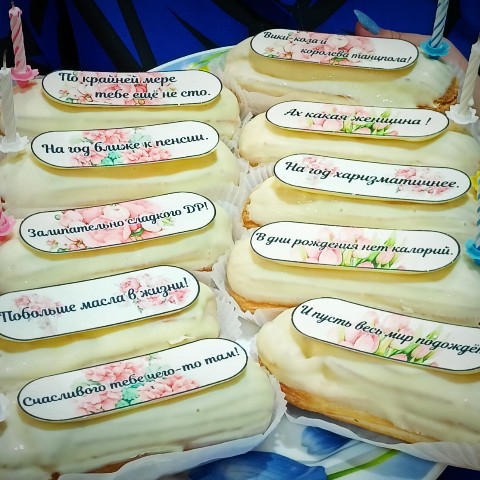 По крайней мере
тебе ещё не сто.
На год ближе к пенсии.
Залипательно сладкого ДР!
Побольше масла в жизни!
Счасливого тебе чего-то там!
Вики-коза и
королева танцпола!
Ах какая женщина !
На год харизматичнее.
В дни рождения нет калорий.
И пусть весь мир подождёт